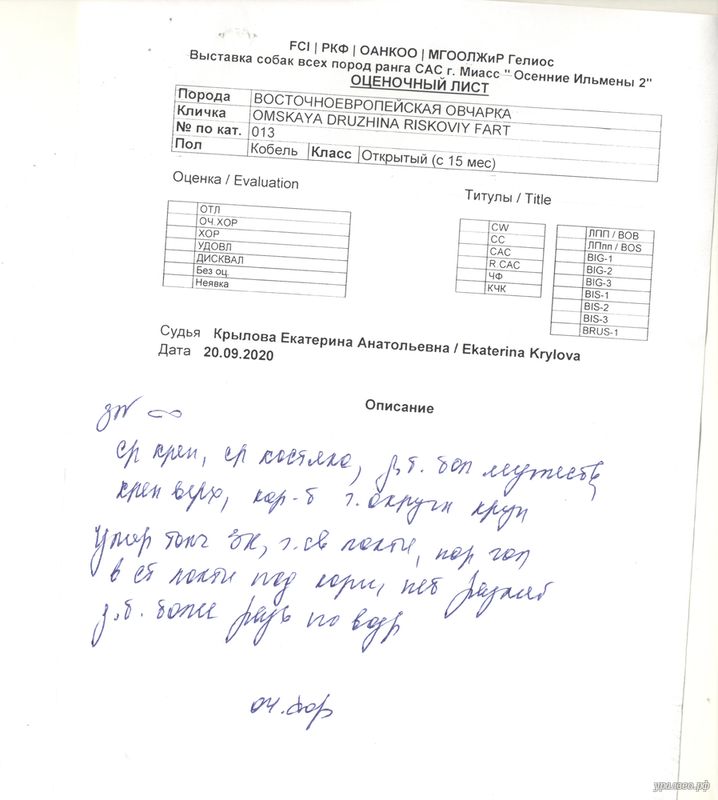 FCI | РКФ | ОАНКОО | МГООЛЖиР Гелиос
Выставка собак всех пород ранга САС г. Миасс " Осенние Ильмены 2"
ОЦЕНОЧНЫЙ ЛИСТ
Порода ВОСТОЧНОЕВРОПЕЙСКАЯ ОВЧАРКА
Кличка OMSKAYA DRUZHINA RISKOVIY FART
№ по кат. 013
Пол Кобель Класс Открытый (с 15 мес)
Оценка / Evaluation
ОТЛ
ОЧ.ХОР
ХОР
УДОВЛ
ДИСКВАЛ
Без оц.
Неявка
Титулы / Title
CW
СС
САС
R САС
ЧФ
КЧК
ЛПП / BOB
ЛПпп / BOS
BIG-1
BIG-2
BIG-3
BIS-1
BIS-2
BIS-3
BRUS-1
Судья Крылова Екатерина Анатольевна / Ekaterina Krylova
Дата 20.09.2020
Описание
ср креп, ср костяка, д.б. бол мужеств
креп верх, кор-б г. округи круп
умер точ ЗК, г. св локти, пор гол
в ст локти под корп, нет
д.б. более по возр
оч. хор
уралвео.рф